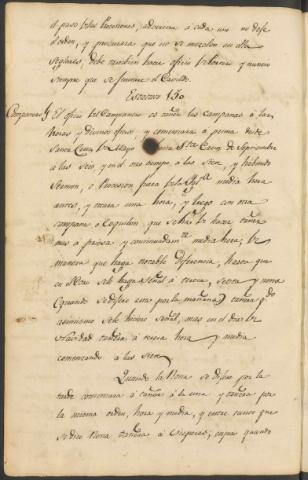 el paso de las Procesiones, advierta á cada uno no dexe
el orden, y procurara que no se mezclen en ella
seglares, debe tambien hacer oficio de Portero y nuncio
siempre que se juntare el Cavildo.
Estatuto 150
Campanero El oficio del Campanero es tañer las campanas á las
horas y divinos oficios, y comenzara á prima desde
Santa Cruz de Mayo Sta Cruz de Septiembre
a las seis, y en el otro tiempo a las siete, y habiendo
Sermon, o Procesion fuera de la Iglª media hora
antes, y tocara una hora, y luego con otra
campana o esquilon, que se ha de hacer tañera
mas á priesa, y continuadamte media hora, de
manera que haga notable diferencia, hasta que
en el Coro se le haga señal á tercia, sexta y nona
(quando se dixere esta por la mañana) tañera qdo
asimismo se le hiciere señal, mas en el dia de
solemnidad tañera á tercia hora y media
comenzando a las siete
Quando la Nona se dixere por la
tarde comenzara á tañer á la una y tañera por
la misma orden, hora y media, y entre tanto que
se dice Nona tañera á Visperas; cuyo quando